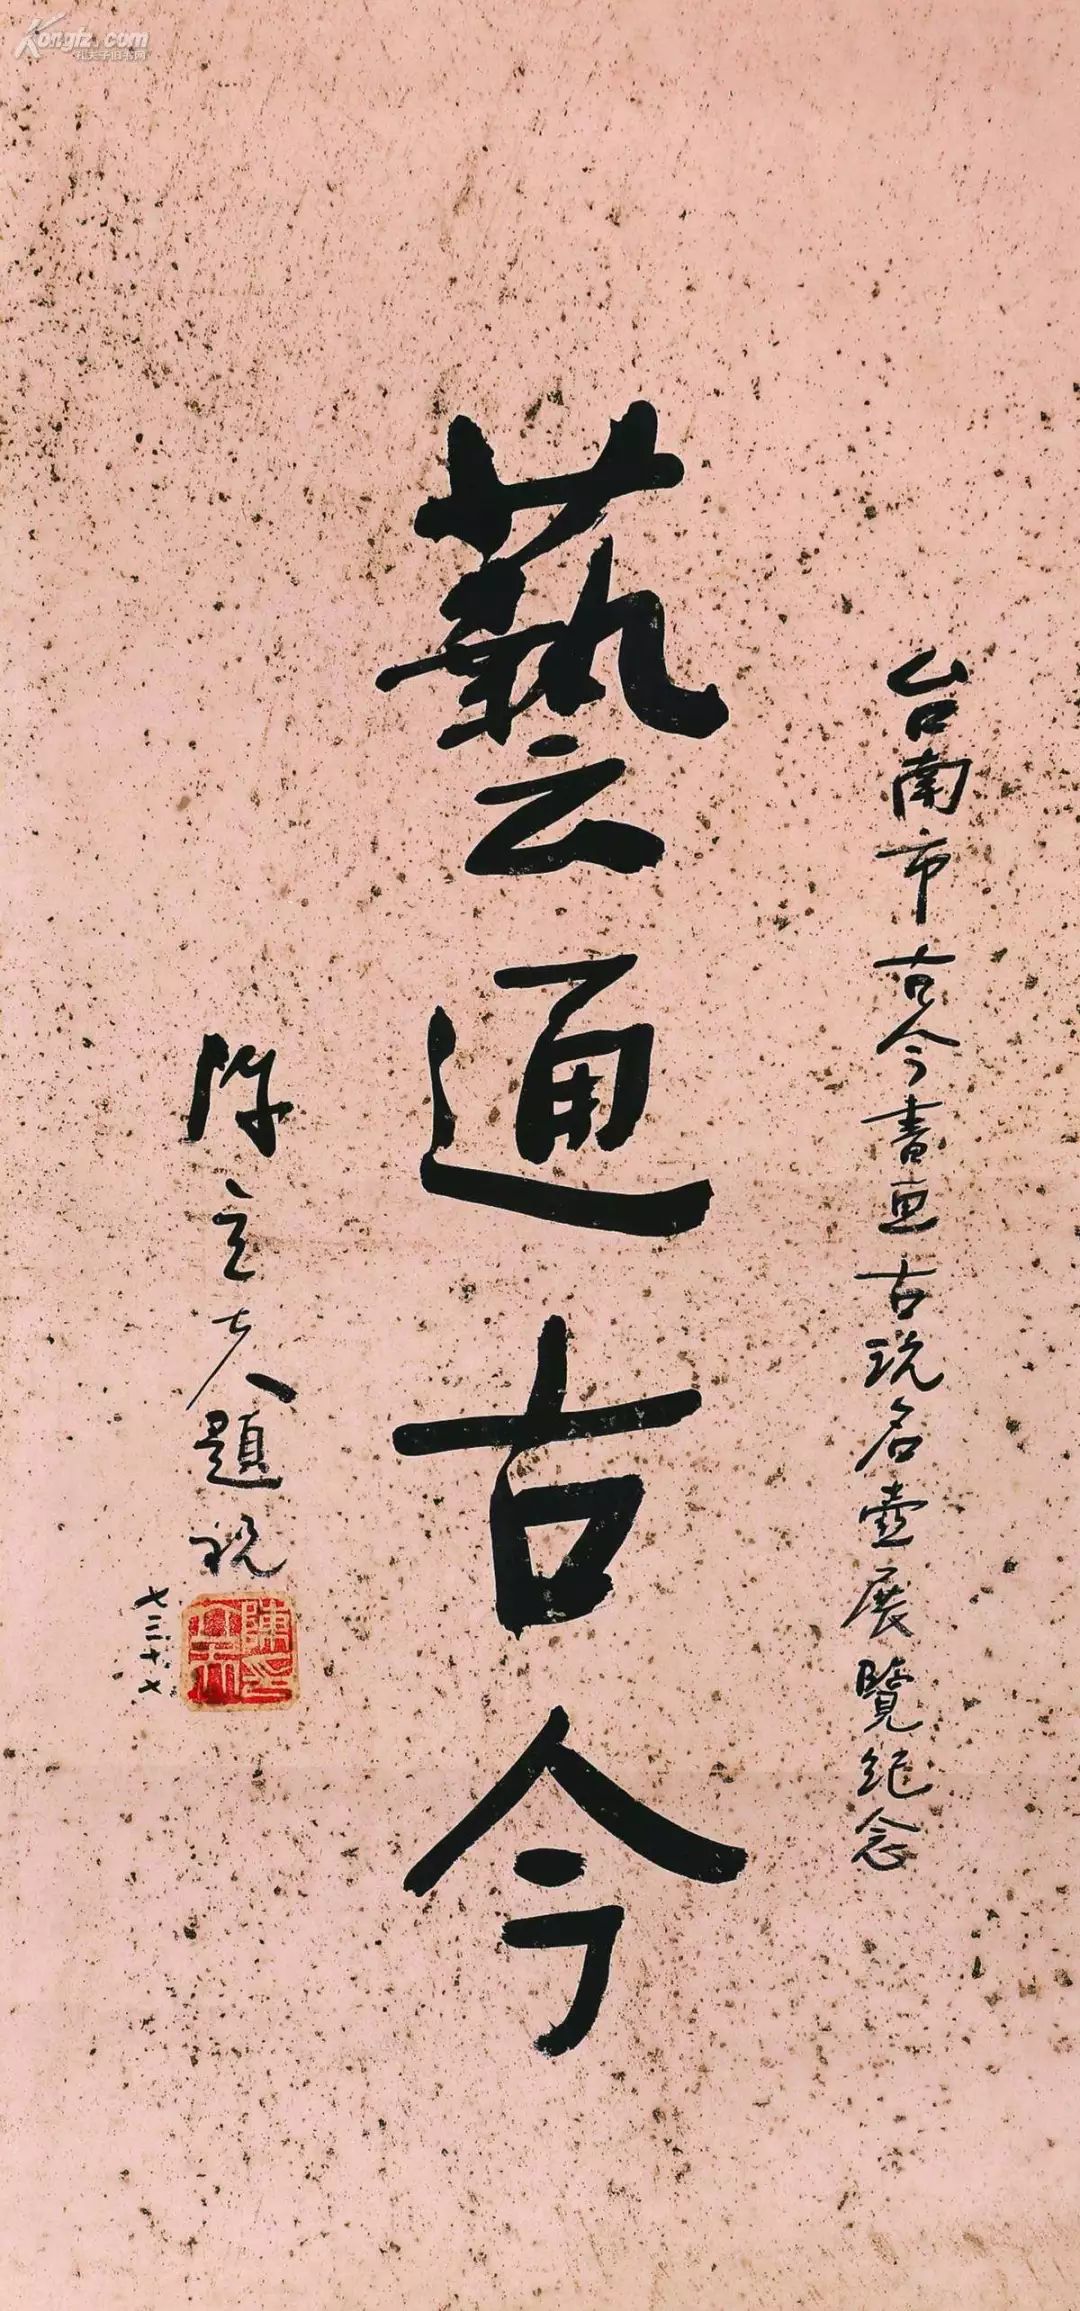 Kongfz.com
孔夫子旧书网
台南市古今書画古玩名壺展覽纪念
藝通古今
陳立夫題祝
七三十七
陳立夫印